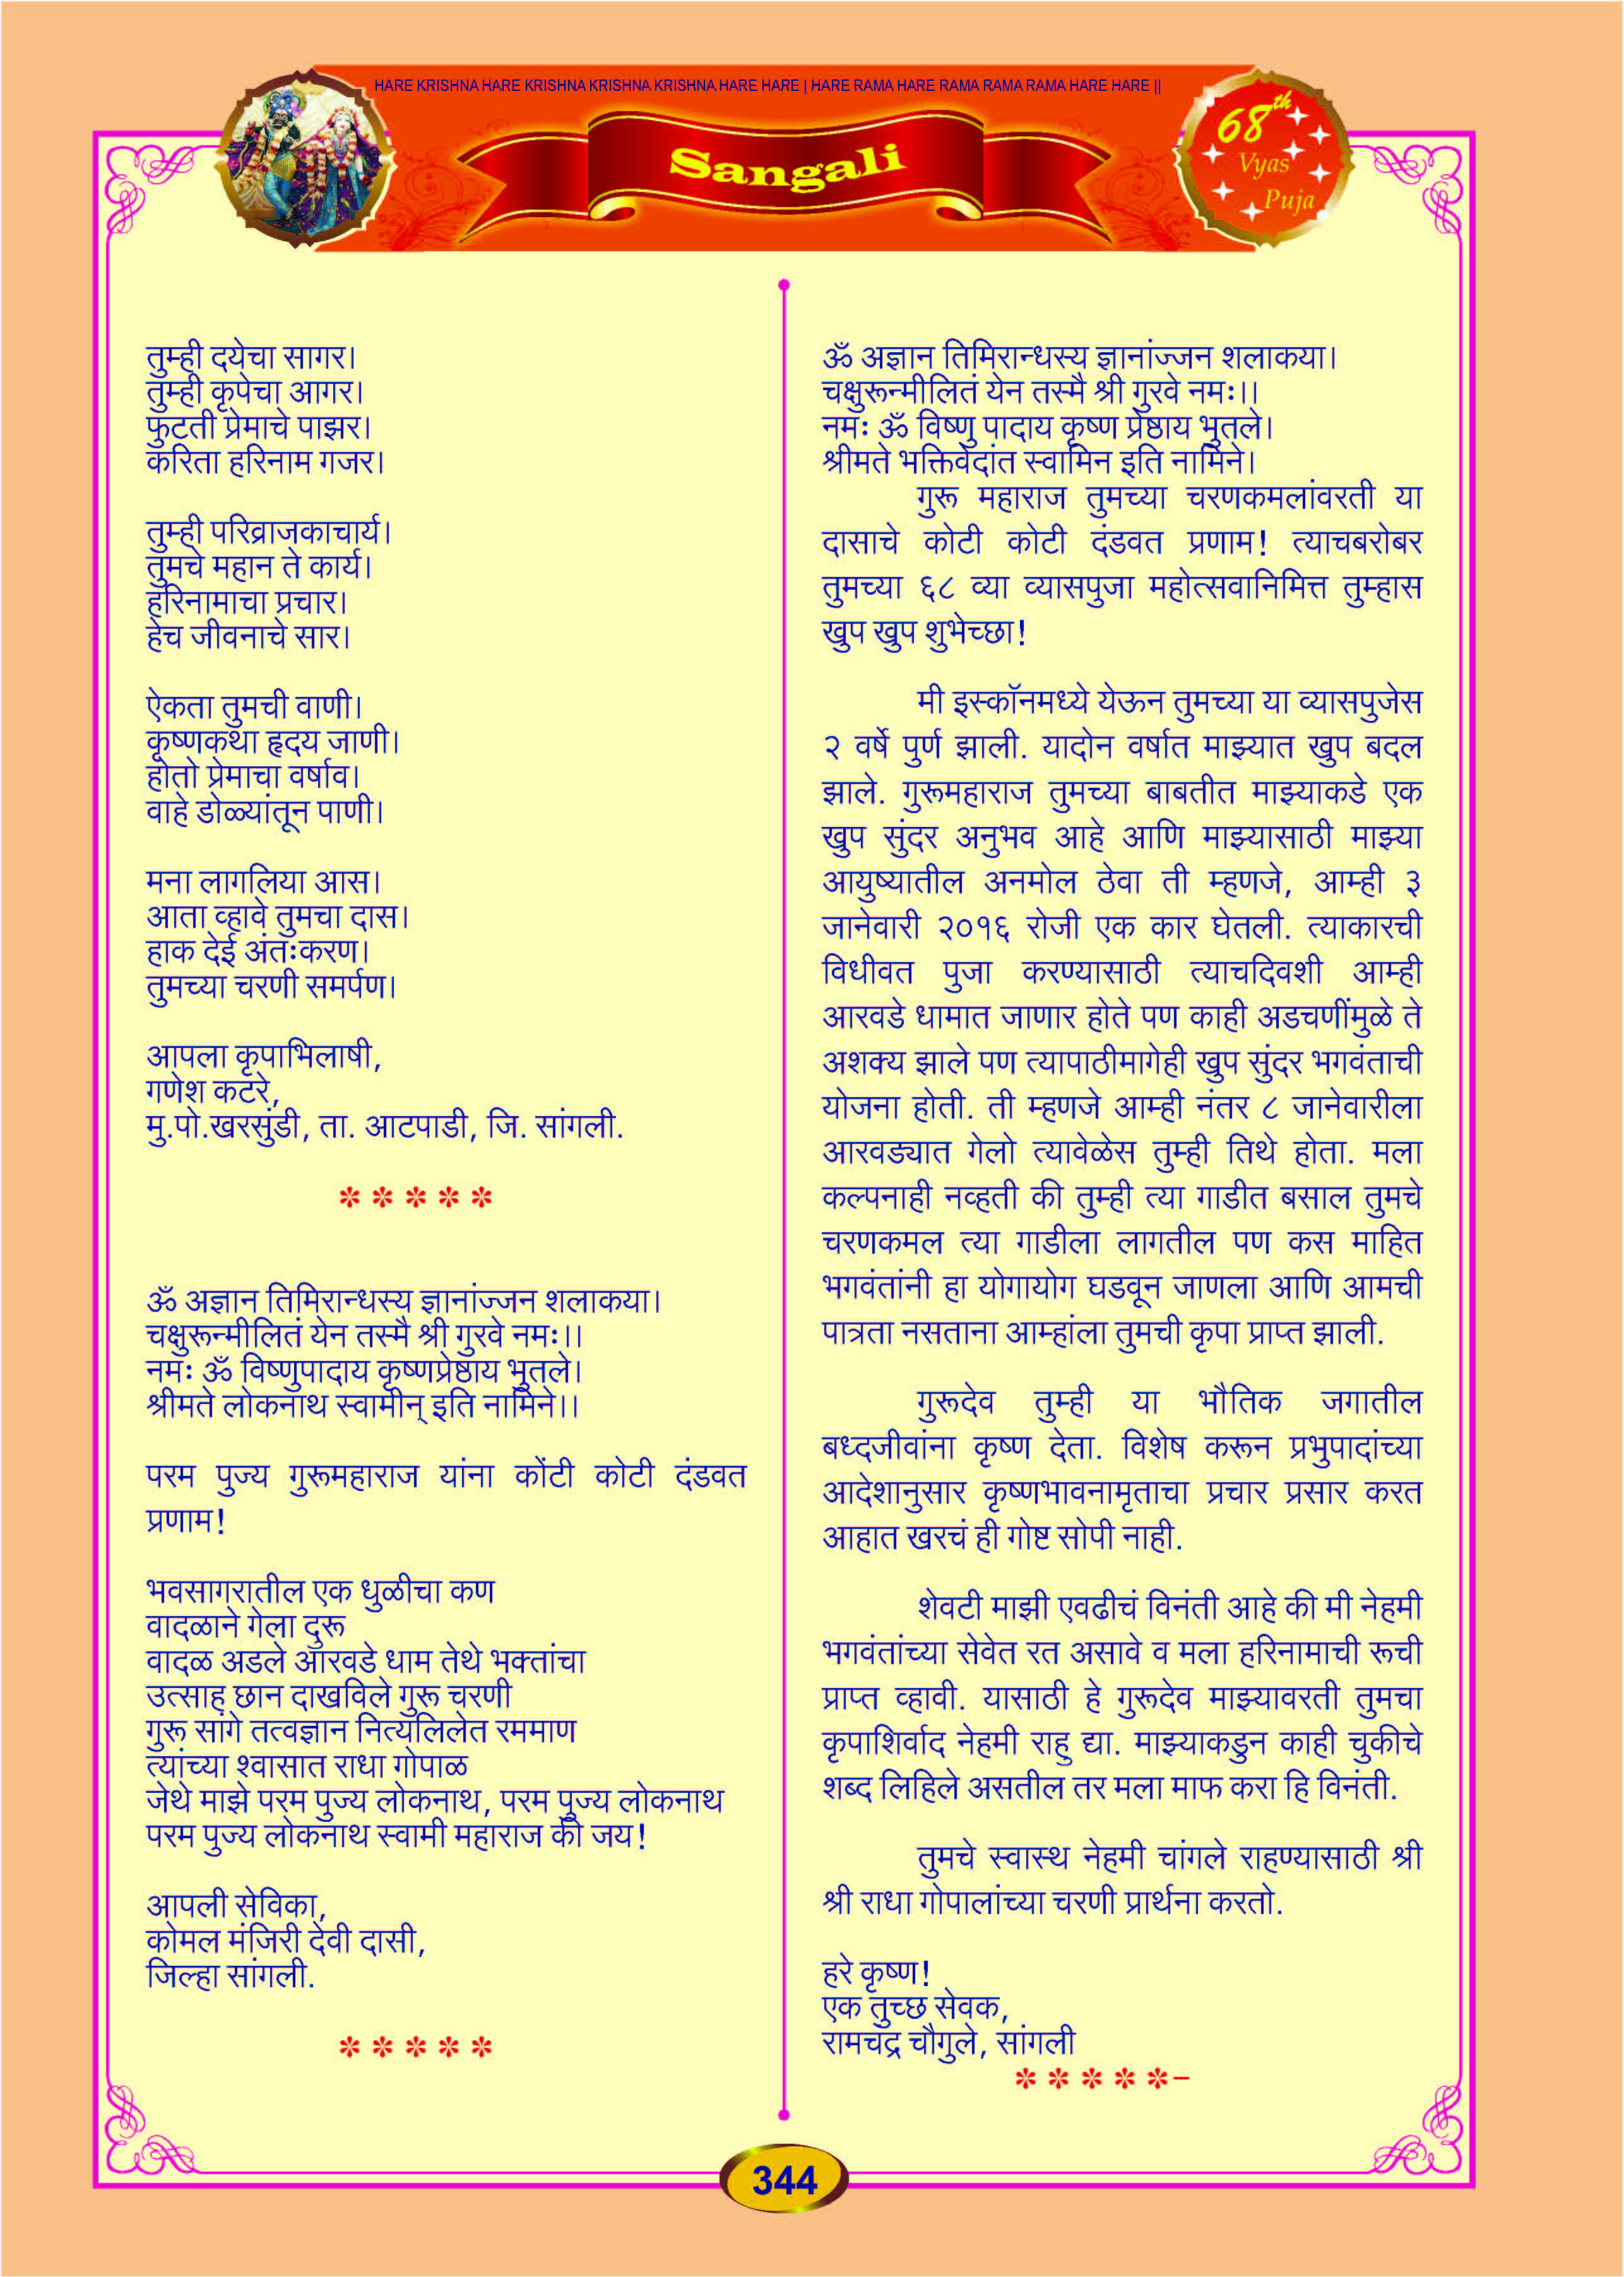 HARE KRISHNA HARE KRISHNA KRISHNA KRISHNA HARE HARE | HARE RAMA HARE RAMA RAMA RAMA HARE HARE ||
Sangali
68th
Vyas
Puja
तुम्ही दयेचा सागर।
तुम्ही कृपेचा आगर।
फुटती प्रेमाचे पाझर।
करिता हरिनाम गजर।
तुम्ही परिव्राजकाचार्य।
तुमचे महान ते कार्य।
हरिनामाचा प्रचार।
हेच जीवनाचे सार।
ऐकता तुमची वाणी।
कृष्णकथा हृदय जाणी।
होतो प्रेमाचा वर्षाव।
वाहे डोळ्यांतून पाणी।
मना लागलिया आस।
आता व्हावे तुमचा दास।
हाक देई अंतःकरण।
तुमच्या चरणी समर्पण।
आपला कृपाभिलाषी,
गणेश कटरे,
मु.पो.खरसुंडी, ता. आटपाडी, जि. सांगली.
* * * * *
ॐ अज्ञान तिमिरान्धस्य ज्ञानांज्जन शलाकया।
चक्षुरून्मीलितं येन तस्मै श्री गुरवे नमः।।
नमः ॐ विष्णुपादाय कृष्णप्रेष्ठाय भुतले।
श्रीमते लोकनाथ स्वामीन् इति नामिने।।
परम पुज्य गुरूमहाराज यांना कोंटी कोटी दंडवत
प्रणाम!
भवसागरातील एक धुळीचा कण
वादळाने गेला दुरू
वादळ अडले आरवडे धाम तेथे भक्तांचा
उत्साह छान दाखविले गुरू चरणी
गुरू सांगे तत्वज्ञान नित्यलिलेत रममाण
त्यांच्या श्वासात राधा गोपाळ
जेथे माझे परम पुज्य लोकनाथ, परम पुज्य लोकनाथ
परम पुज्य लोकनाथ स्वामी महाराज की जय!
आपली सेविका,
कोमल मंजिरी देवी दासी,
जिल्हा सांगली.
* * * * *
ॐ अज्ञान तिमिरान्धस्य ज्ञानांज्जन शलाकया।
चक्षुरून्मीलितं येन तस्मै श्री गुरवे नमः।।
नमः ॐ विष्णु पादाय कृष्ण प्रेष्ठाय भुतले।
श्रीमते भक्तिवेदांत स्वामिन इति नामिने।
गुरू महाराज तुमच्या चरणकमलांवरती या
दासाचे कोटी कोटी दंडवत प्रणाम! त्याचबरोबर
तुमच्या ६८ व्या व्यासपुजा महोत्सवानिमित्त तुम्हास
खुप खुप शुभेच्छा!
मी इस्कॉनमध्ये येऊन तुमच्या या व्यासपुजेस
२ वर्षे पुर्ण झाली. यादोन वर्षात माझ्यात खुप बदल
झाले. गुरूमहाराज तुमच्या बाबतीत माझ्याकडे एक
खुप सुंदर अनुभव आहे आणि माझ्यासाठी माझ्या
आयुष्यातील अनमोल ठेवा ती म्हणजे, आम्ही ३
जानेवारी २०१६ रोजी एक कार घेतली. त्याकारची
विधीवत पुजा करण्यासाठी त्याचदिवशी आम्ही
आरवडे धामात जाणार होते पण काही अडचणींमुळे ते
अशक्य झाले पण त्यापाठीमागेही खुप सुंदर भगवंताची
योजना होती. ती म्हणजे आम्ही नंतर ८ जानेवारीला
आरवड्यात गेलो त्यावेळेस तुम्ही तिथे होता. मला
कल्पनाही नव्हती की तुम्ही त्या गाडीत बसाल तुमचे
चरणकमल त्या गाडीला लागतील पण कस माहित
भगवंतांनी हा योगायोग घडवून जाणला आणि आमची
पात्रता नसताना आम्हांला तुमची कृपा प्राप्त झाली.
गुरूदेव तुम्ही या भौतिक जगातील
बध्दजीवांना कृष्ण देता. विशेष करून प्रभुपादांच्या
आदेशानुसार कृष्णभावनामृताचा प्रचार प्रसार करत
आहात खरचं ही गोष्ट सोपी नाही.
शेवटी माझी एवढीचं विनंती आहे की मी नेहमी
भगवंतांच्या सेवेत रत असावे व मला हरिनामाची रूची
प्राप्त व्हावी. यासाठी हे गुरूदेव माझ्यावरती तुमचा
कृपाशिर्वाद नेहमी राहु द्या. माझ्याकडुन काही चुकीचे
शब्द लिहिले असतील तर मला माफ करा हि विनंती.
तुमचे स्वास्थ नेहमी चांगले राहण्यासाठी श्री
श्री राधा गोपालांच्या चरणी प्रार्थना करतो.
हरे कृष्ण!
एक तुच्छ सेवक,
रामचंद्र चौगुले, सांगली
* * * * *–
344